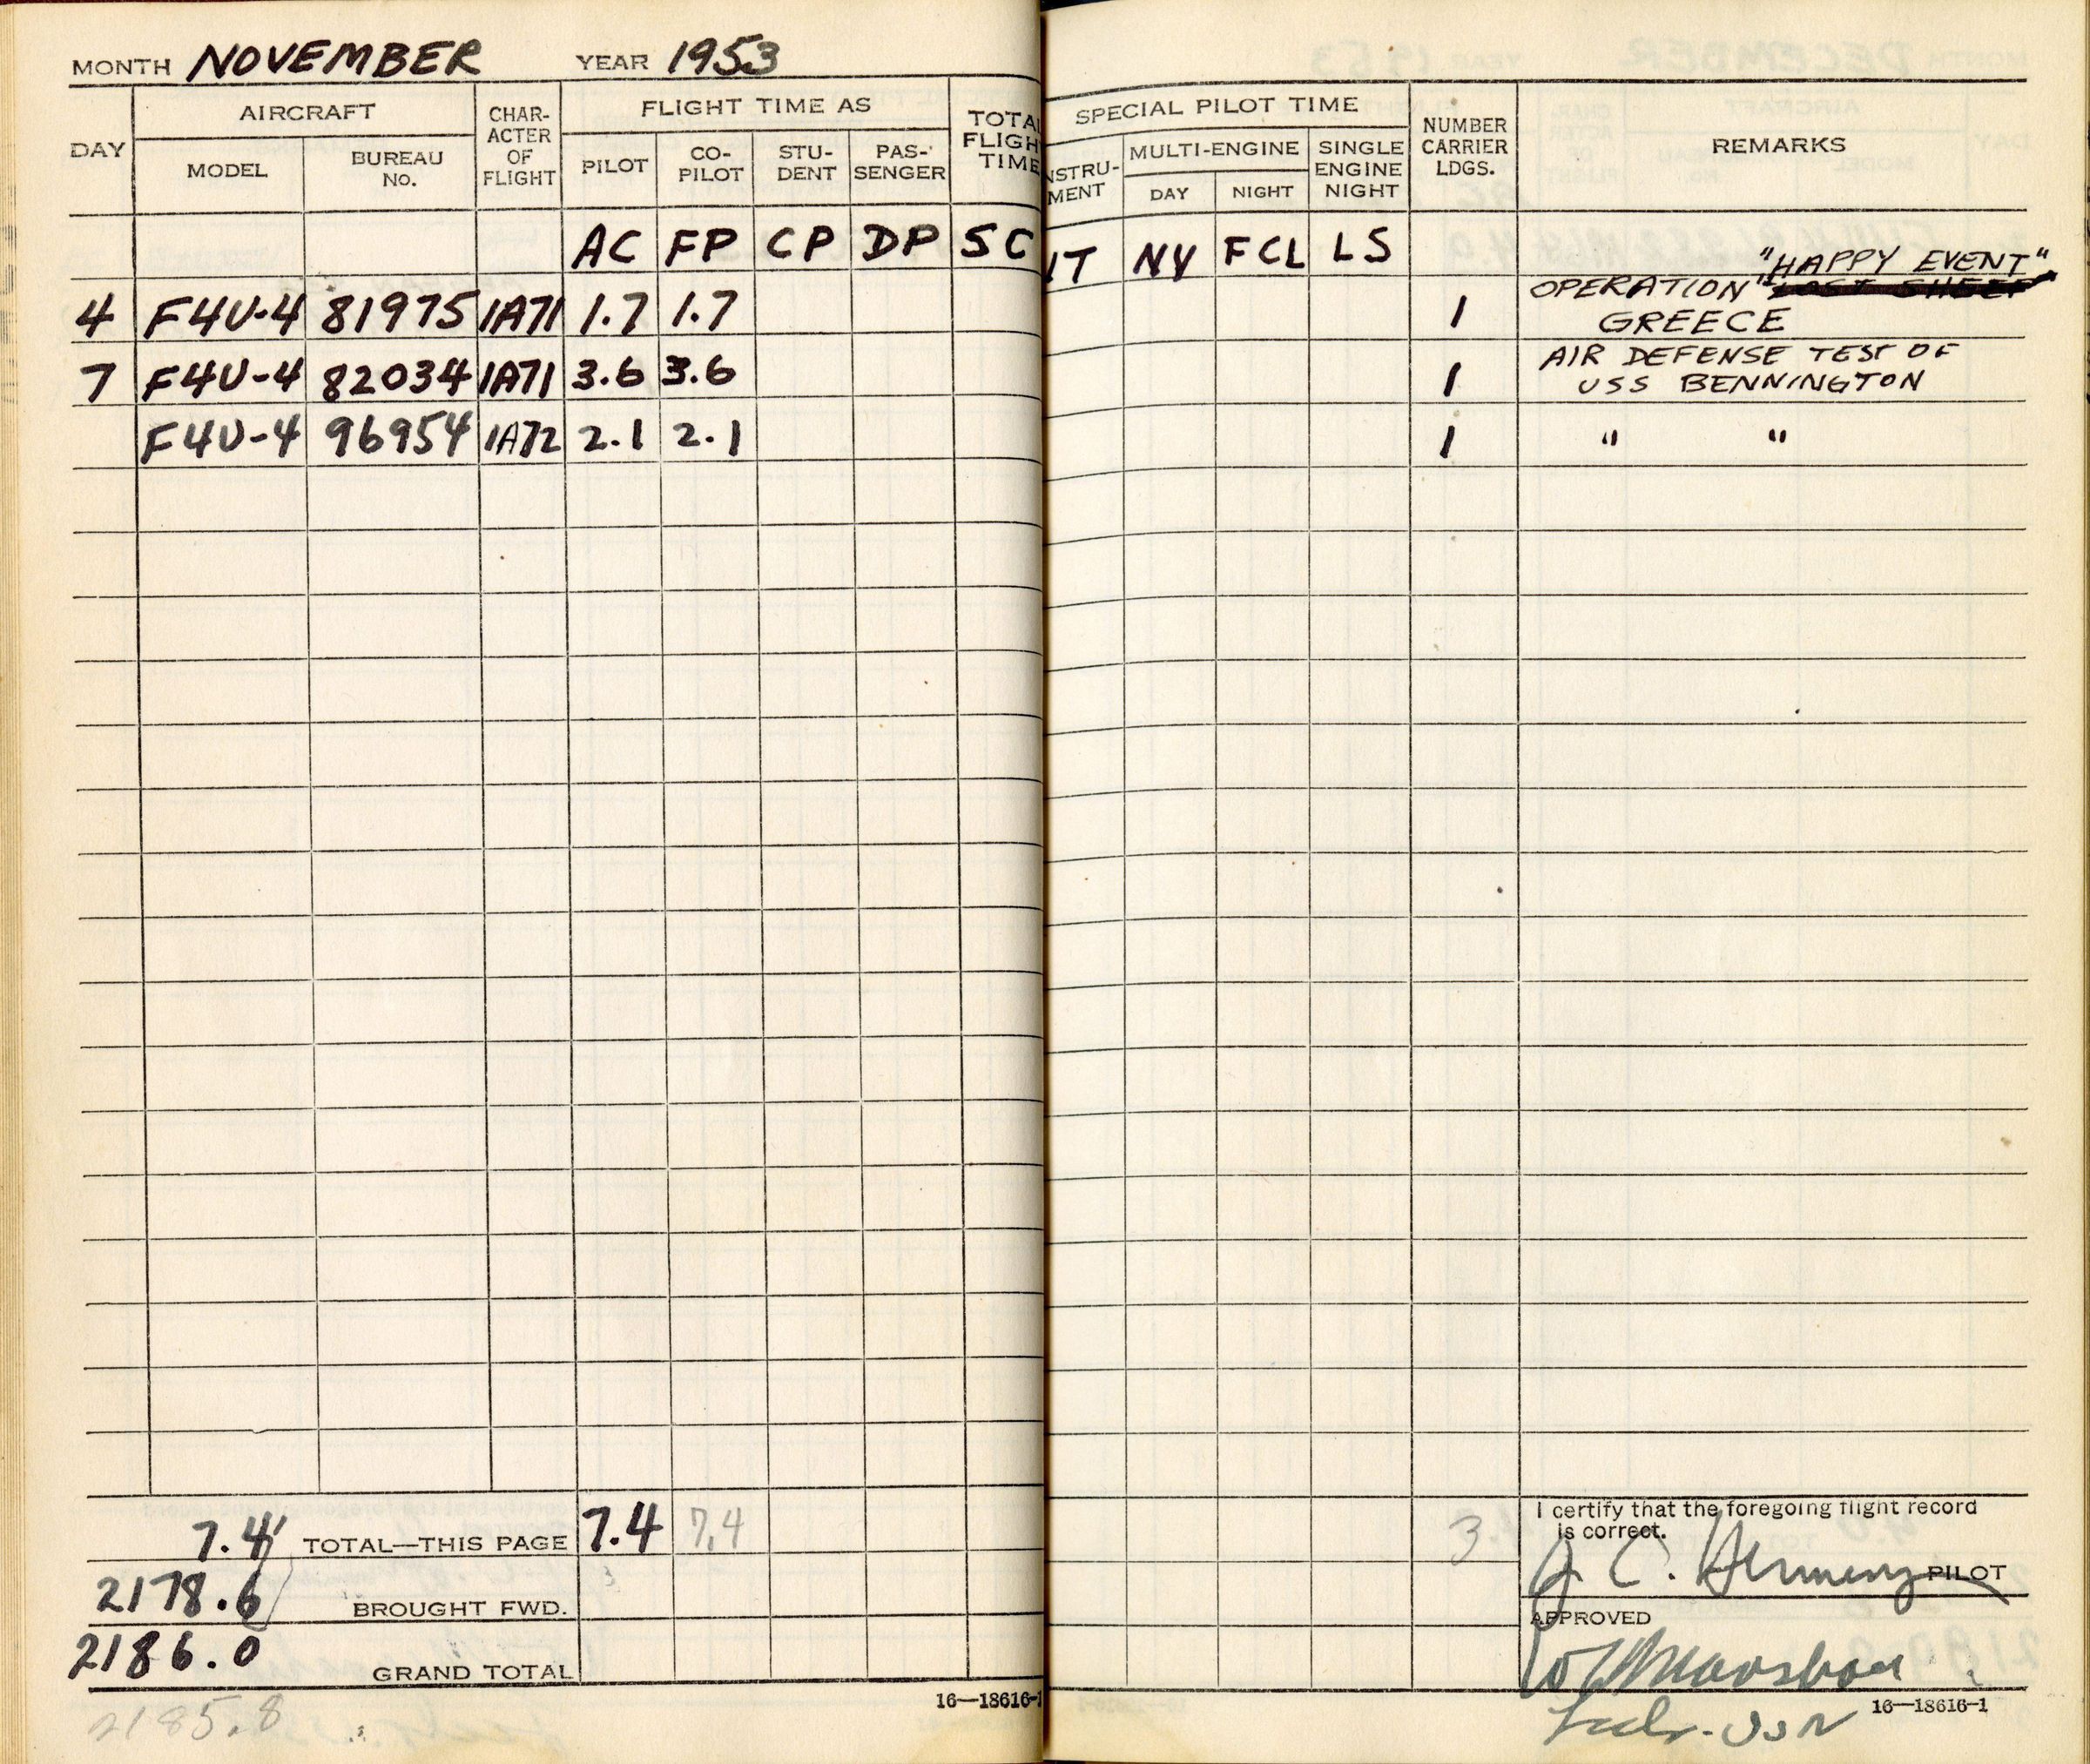 MONTH NOVEMBER YEAR 1953
DAY AIRCRAFT CHAR-ACTER OF FLIGHT FLIGHT TIME AS TOTA FLIGH TIME
MODEL BUREAU NO. PILOT CO-PILOT STU-DENT PAS-SENGER
AC FP CP DP SC
4 F4U-4 81975 1A71 1.7 1.7
7 F4U-4 82034 1A71 3.6 3.6
F4U-4 96954 1A72 2.1 2.1
7.4 TOTAL—THIS PAGE 7.4 7.4
2178.6 BROUGHT FWD.
2186.0 GRAND TOTAL
2185.8
16—18616-1
SPECIAL PILOT TIME NUMBER CARRIER LDGS. REMARKS
NSTRU-MENT MULTI-ENGINE SINGLE ENGINE NIGHT
DAY NIGHT
IT NY FCL LS
"HAPPY EVENT"
OPERATION "LOST SHEEP
1 GREECE
AIR DEFENSE TEST OF
1 USS BENNINGTON
1 " "
I certify that the foregoing flight record
is correct.
3
J. C. PILOT
APPROVED
USN
16—18616-1